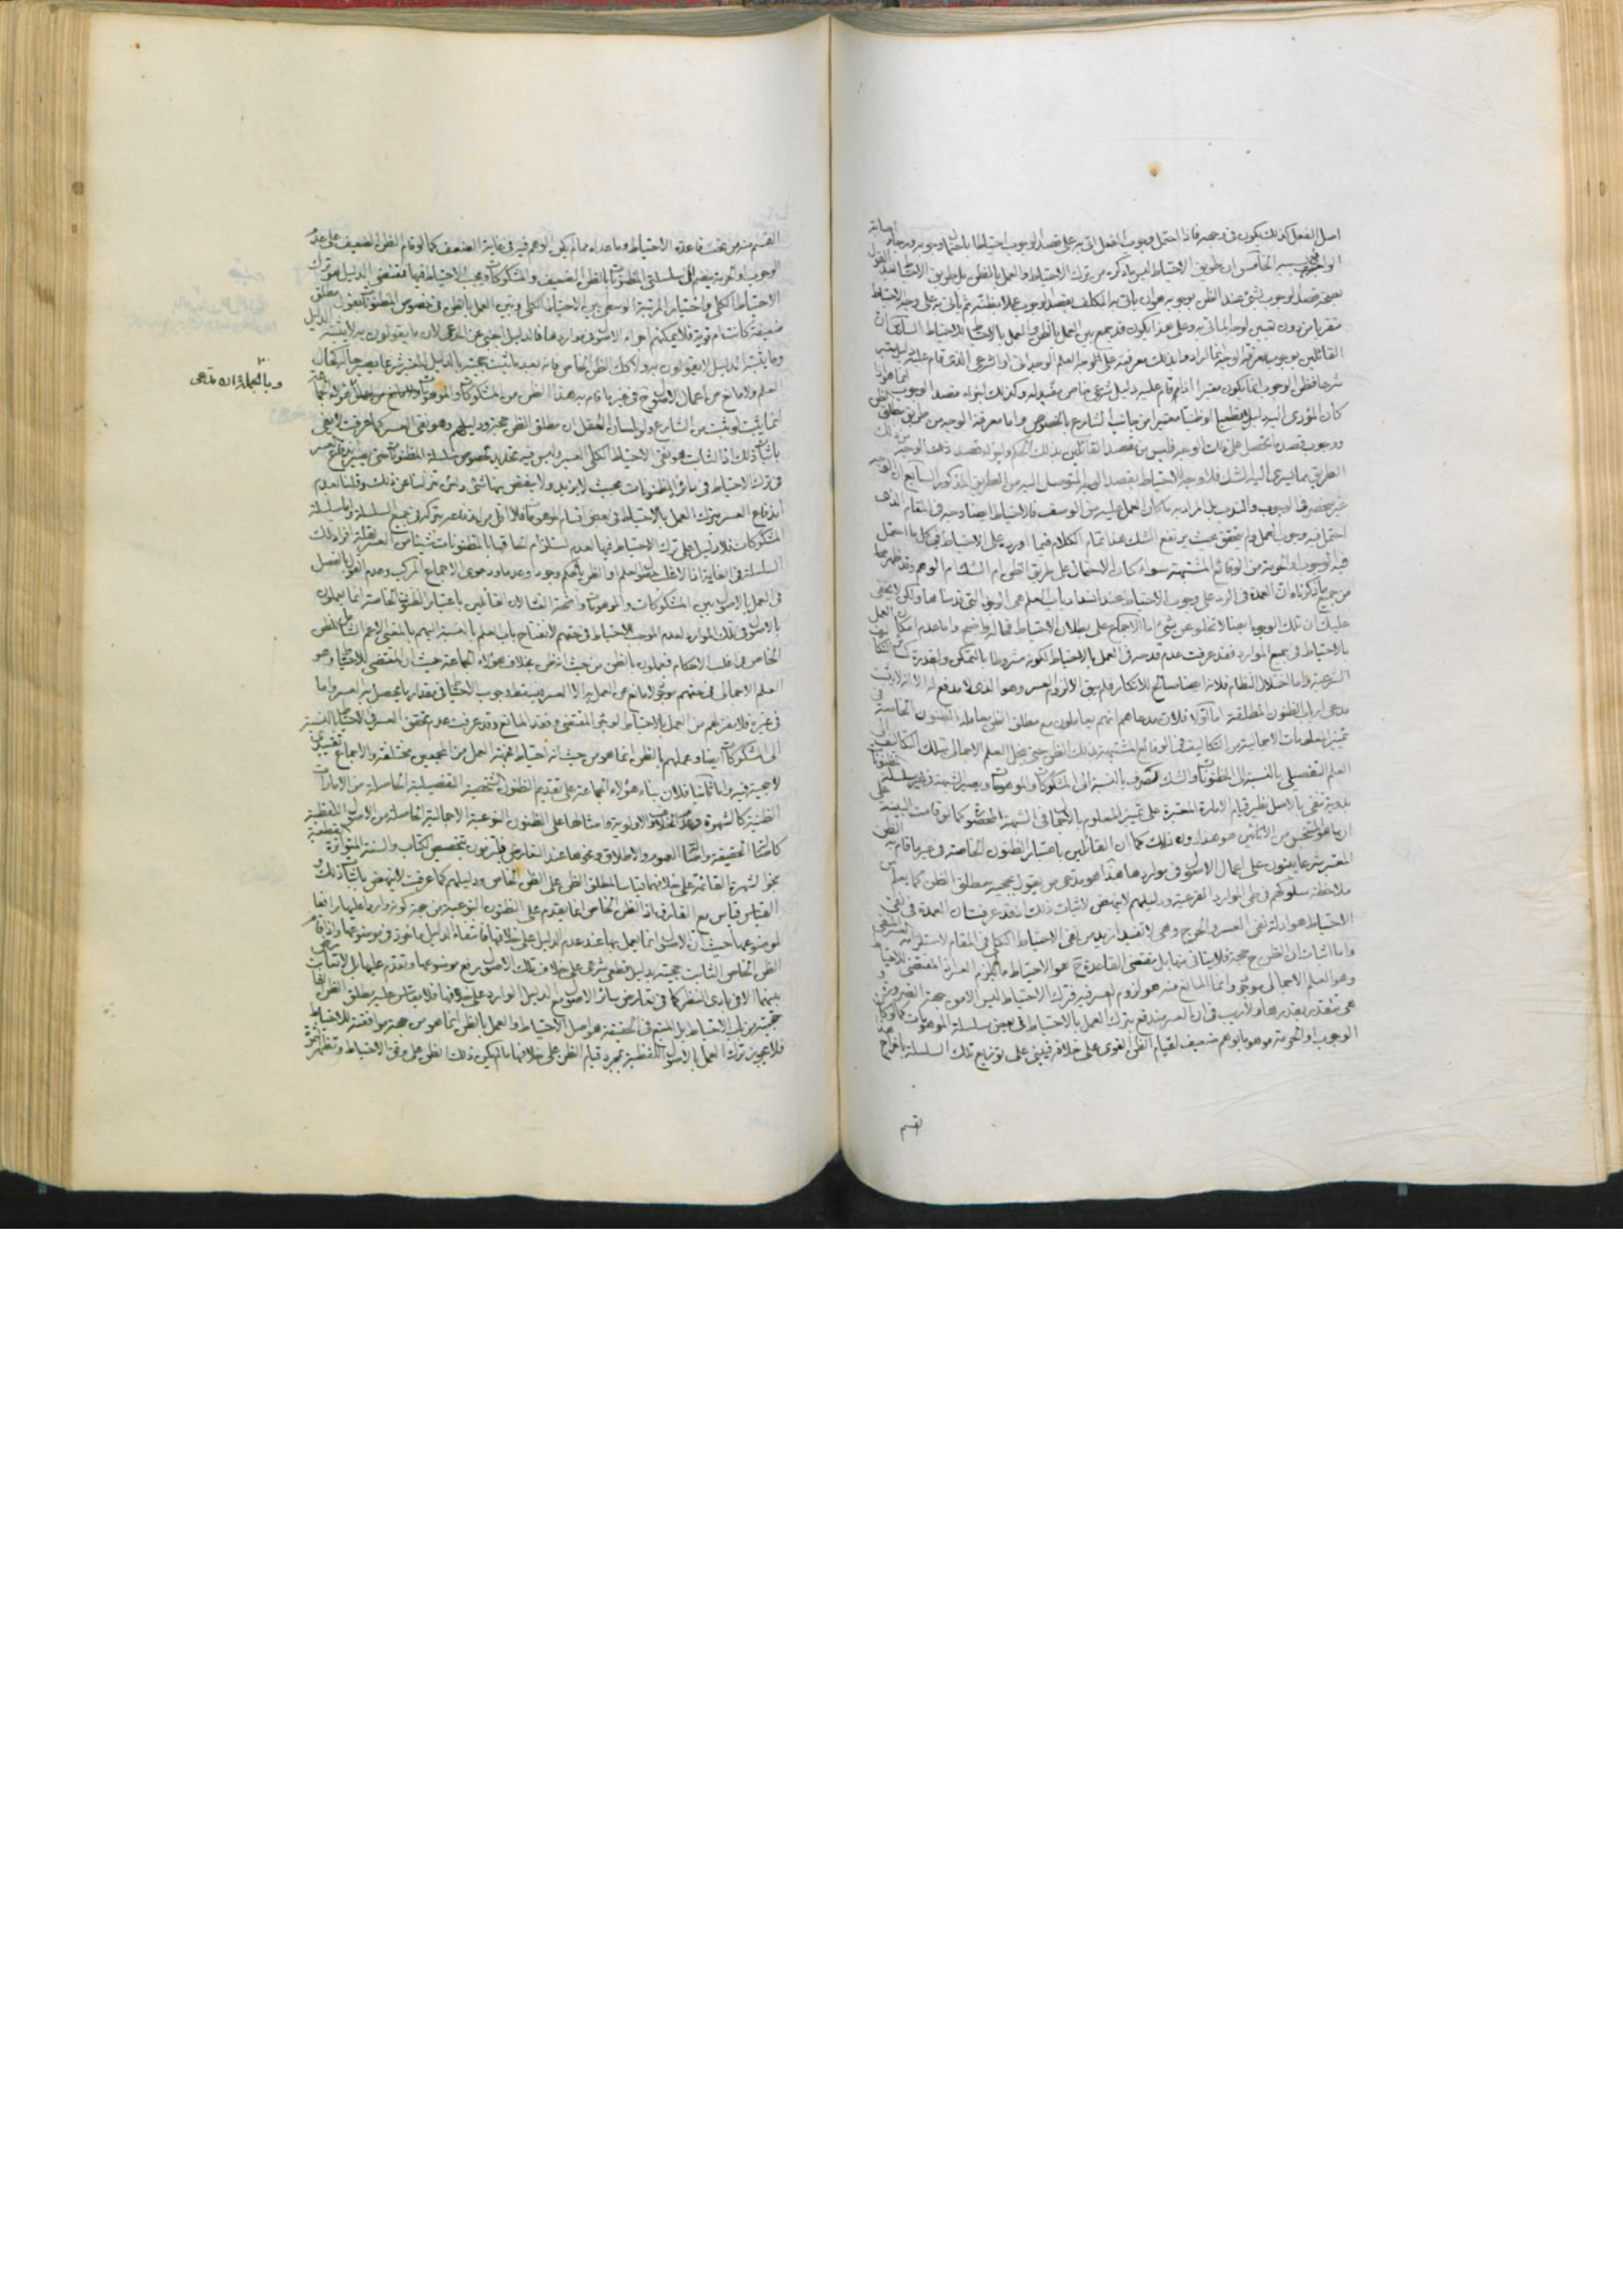 اصل الفعل كذلك يكون في وجهه فاذا احتمل وجوب الفعل اتى به على قصد الوجوب احتياطا باحتمال وجوبه ورجاء اصابة
الواقع الخامس ان طريق الاحتياط ليس ما ذكره من ترك الاحتياط والعمل بالظن بل طريق الاحتياط بعد القول
بصحة قصد الوجوب بشئ عند الظن بوجوبه هو ان ياتي به المكلف بقصد الوجوب عملا بظنه ثم ياتي به على وجه الاحتياط
متقربا من دون تعيين لوجه الماتي به وعلى هذا يكون قد يجمع بين العمل بالظن والعمل بالاحتياط السادس ان
القائلين بوجوب معرفة الوجه انما ارادوا بذلك معرفته على الوجه العلم الوجداني او الشرعي الذي قام عليه دليل معتبر
شرعا فظن الوجوب انما يكون معتبرا اذا قام عليه دليل شرعي خاص يفيد له وكذلك اجزاء قصد الوجوب انما هو اذا
كان المؤدى اليه دليلا قطعيا او ظنيا معتبرا من جانب الشارع بالخصوص واما معرفة الوجه من طريق مطلق الظن
ووجوب قصد ما يحصل على ذلك الوجه فليس من قصد القائلين بذلك الحكم
الطريق مما يسري اليه الشك فلا وجه للاحتياط بقصد الوجه المتوصل اليه من الطريق المذكور السابع ان الوجه
غير منحصر في الوجوب والندب بل المراد به ما كان العمل عليه من الوصف فالاحتياط ايضا وجه في المقام الذي
احتمل فيه وجوب العمل ولم يتحقق بحيث يرتفع الشك هذا تمام الكلام فيما اورد على الاحتياط في كل ما احتمل
فيه الوجوب او الحرمة من الوقائع المشتبهة سواء كان الاحتمال على طريق الظن ام الشك ام الوهم وقد ظهر مما
من جميع ما ذكرناه ان العمدة في الرد على وجوب الاحتياط عند انسداد باب العلم هي الوجوه التي قدمناها ولكن لا يخفى
عليك ان تلك الوجوه ايضا لا تخلو عن شئ اما الاجماع على بطلان الاحتياط فحاله واضح واما عدم امكان العمل
بالاحتياط في جميع الموارد فقد عرفت عدم قدحه في العمل بالاحتياط لكونه مشروطا بالتمكن والقدرة كسائر التكاليف
الشرعية واما اختلال النظام فلانه ايضا صالح للانكار فلم يبق الا لزوم العسر وهو الذي لا مدفع له الا انه لا يثبت
مدعى ارباب الظنون المطلقة اما اولا فلان مدعاهم انهم يعاملون مع مطلق الظن معاملة الظنون الخاصة في
تميز المعلومات الاجمالية من التكاليف في الوقائع المشتبهة بذلك الظن حتى يبطل العلم الاجمالي بتلك التكاليف الى
العلم التفصيلي بالنسبة الى المظنونات والشك الصرف بالنسبة الى المشكوكات والموهومات ويصير الشبهة في غير سلسلة المظنونات
بدوية تنفى بالاصل نظير قيام الامارة المعتبرة على تميز المعلوم بالاجمال في الشبهة المحصورة كما لو قامت البينة على
ان ما هو النجس من الانائين هو هذا دون ذلك كما ان القائلين باعتبار الظنون الخاصة في غير ما قام به الظن
المعتبر شرعا يبنون على اعمال الاصول في مواردها هذا هو مدعى من يقول بحجية مطلق الظن كما يعلم من
ملاحظة سلوكهم في طي الموارد الفرعية ودليلهم لا ينهض لاثبات ذلك اذ قد عرفت ان العمدة في نفي
الاحتياط هو ادلة نفي العسر والحرج وهي لا تفيد ازيد من نفي الاحتياط الكلي في المقام لاستلزامه العسر المنفي
واما اثبات ان الظن ح حجة فلا يتاتى منها بل مقتضى القاعدة ح هو الاحتياط ما لم يلزم العسر اذ المقتضي للاحتياط
وهو العلم الاجمالي موجود وانما المانع منه هو لزوم العسر فيه فترك الاحتياط ليس الا من جهة الضرورة و
هي تتقدر بقدرها ولا ريب في ان العسر يندفع بترك العمل بالاحتياط في بعض سلسلة الموهومات كما لو كان
الوجوب او الحرمة موهوما بوهم ضعيف لقيام الظن القوي على خلافه فيبنى على توزيع تلك السلسلة باخراج هذا
القسم
القسم منه من تحت قاعدة الاحتياط وما عداه مما لم يكن الوهم فيه في غاية الضعف كما لو قام الظن الضعيف على عدم
الوجوب او الحرمة ينضم الى سلسلتي المظنونات بالظن الضعيف والمشكوكات ويجب الاحتياط فيها فمقتضى الدليل هو ترك
الاحتياط الكلي واختيار المرتبة الوسطى بين الاحتياط الكلي وبين العمل بالظن في خصوص المظنونات بقول مطلق
ضعيفة كانت ام قوية فلا يمكنهم اجراء الاصول في مواردها فالدليل اجنبي عن المدعى لان ما يقولون به لا يثبته الدليل
وما يثبته الدليل لا يقولون به ولا كذلك الظن الخاص فانه بعد ما ثبت حجيته بالدليل المعتبر شرعا يصير حاله كحال
العلم ولا مانع من اعمال الاصول ح في غير ما قام به هذا الظن من المشكوكات والموهومات
وبالجملة ان مدعى
انما يثبت لو ثبت من الشارع ولو بلسان العقل ان مطلق الظن حجة ودليلهم وهو نفي العسر كما عرفت لا يفي
باثبات ذلك اذ الثابت هو نفي الاحتياط الكلي العسير وليس فيه تحديد بخصوص سلسلة المظنونات حتى يصير
في ترك الاحتياط في سائر المظنونات بحيث لا يزيد ولا ينقص بها شئ ولئن تنزلنا عن ذلك وقلنا بعدم
اندفاع العسر بترك العمل بالاحتياط في بعض اقسام الموهومات فلا اقل من اندفاعه بتركه في جميع السلسلة واما سلسلة
المشكوكات فلا دليل على ترك الاحتياط فيها لعدم استلزام الحاقها بالمظنونات شيئا من العسر لقلة افراد تلك
السلسلة في الغاية اذ الاغلب حصول العلم او الظن بالحكم وجودا وعدما ودعوى الاجماع المركب وعدم القول بالفصل
في العمل بالاصول بين المشكوكات والموهومات واضحة الفساد لان القائلين باعتبار الظنون الخاصة انما يعملون
بالاصول في تلك الموارد لعدم الموجب للاحتياط في حقهم لانفتاح باب العلم بالنسبة اليهم بالمعنى الاعم الشامل للظن
الخاص في اغلب الاحكام فيعملون بالظن من حيث انه ظن بخلاف هؤلاء الجماعة حيث ان المقتضي للاحتياط وهو
العلم الاجمالي في حقهم موجود لا مانع من العمل به الا العسر فيسقط وجوب الاحتياط في مقدار ما يحصل به العسر واما
في غيره فلا مفر لهم من العمل بالاحتياط لوجود المقتضي وفقد المانع وقد عرفت عدم تحقق العسر في الاحتياط بالنسبة
الى المشكوكات ايضا وعملهم بالظن انما هو من حيث انه احتياط فجهة العمل من المجمعين مختلفة والاجماع تقييدي
لا حجية فيه واما ثانيا فلان بناء هؤلاء الجماعة على تقديم الظنون الشخصية التفصيلية الحاصلة من الامارات
الظنية كالشهرة وعدم الخلاف والاولوية وامثالها على الظنون النوعية الاجمالية الحاصلة من الاصول اللفظية
كاصالة الحقيقة واصالة العموم والاطلاق ونحوها عند التعارض فيلتزمون بتخصيص الكتاب والسنة المتواترة القطعية
بنحو الشهرة القائمة على خلافهما قياسا لمطلق الظن على الظن الخاص ودليلهم كما عرفت لا ينهض باثبات ذلك و
القياس قياس مع الفارق اذ الظن الخاص انما يقدم على الظنون النوعية من جهة كونه واردا عليها رافعا
لموضوعها حيث ان الاصول انما يعمل بها عند عدم الدليل على خلافها فانتفاء الدليل ماخوذ في موضوعها واذا قام
الظن الخاص الثابت حجيته بدليل قطعي شرعي على خلاف تلك الاصول يرفع موضوعها ويقدم عليها بل لا تعارض
بينهما الا في بادي النظر كما في تعارض سائر الاصول مع الدليل الوارد على خلافها فلا يقاس عليه مطلق الظن الذي
حجيته من باب الاحتياط بل المتبع في الحقيقة هو اصل الاحتياط والعمل بالظن انما هو من جهة موافقته للاحتياط
فلا يجوز ترك العمل بالاصول اللفظية بمجرد قيام الظن على خلافها ما لم يكن ذلك الظن على وفق الاحتياط وتظهر الثمرة